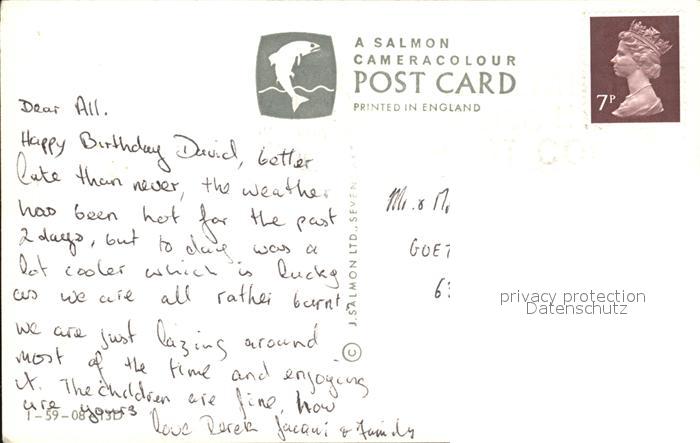 A SALMON
CAMERACOLOUR
POST CARD
PRINTED IN ENGLAND
7P
Dear All.
Happy Birthday David, better
late than never, the weather
has been hot for the past
2 days, but to day was a
lot cooler which is lucky
as we are all rather burnt.
we are just lazing around
most of the time and enjoying
it. The children are fine, how
are yours
love Derek & Family
1-59-08
© J. SALMON LTD., SEVEN
Mr. & M
GOET
63
privacy protection
Datenschutz